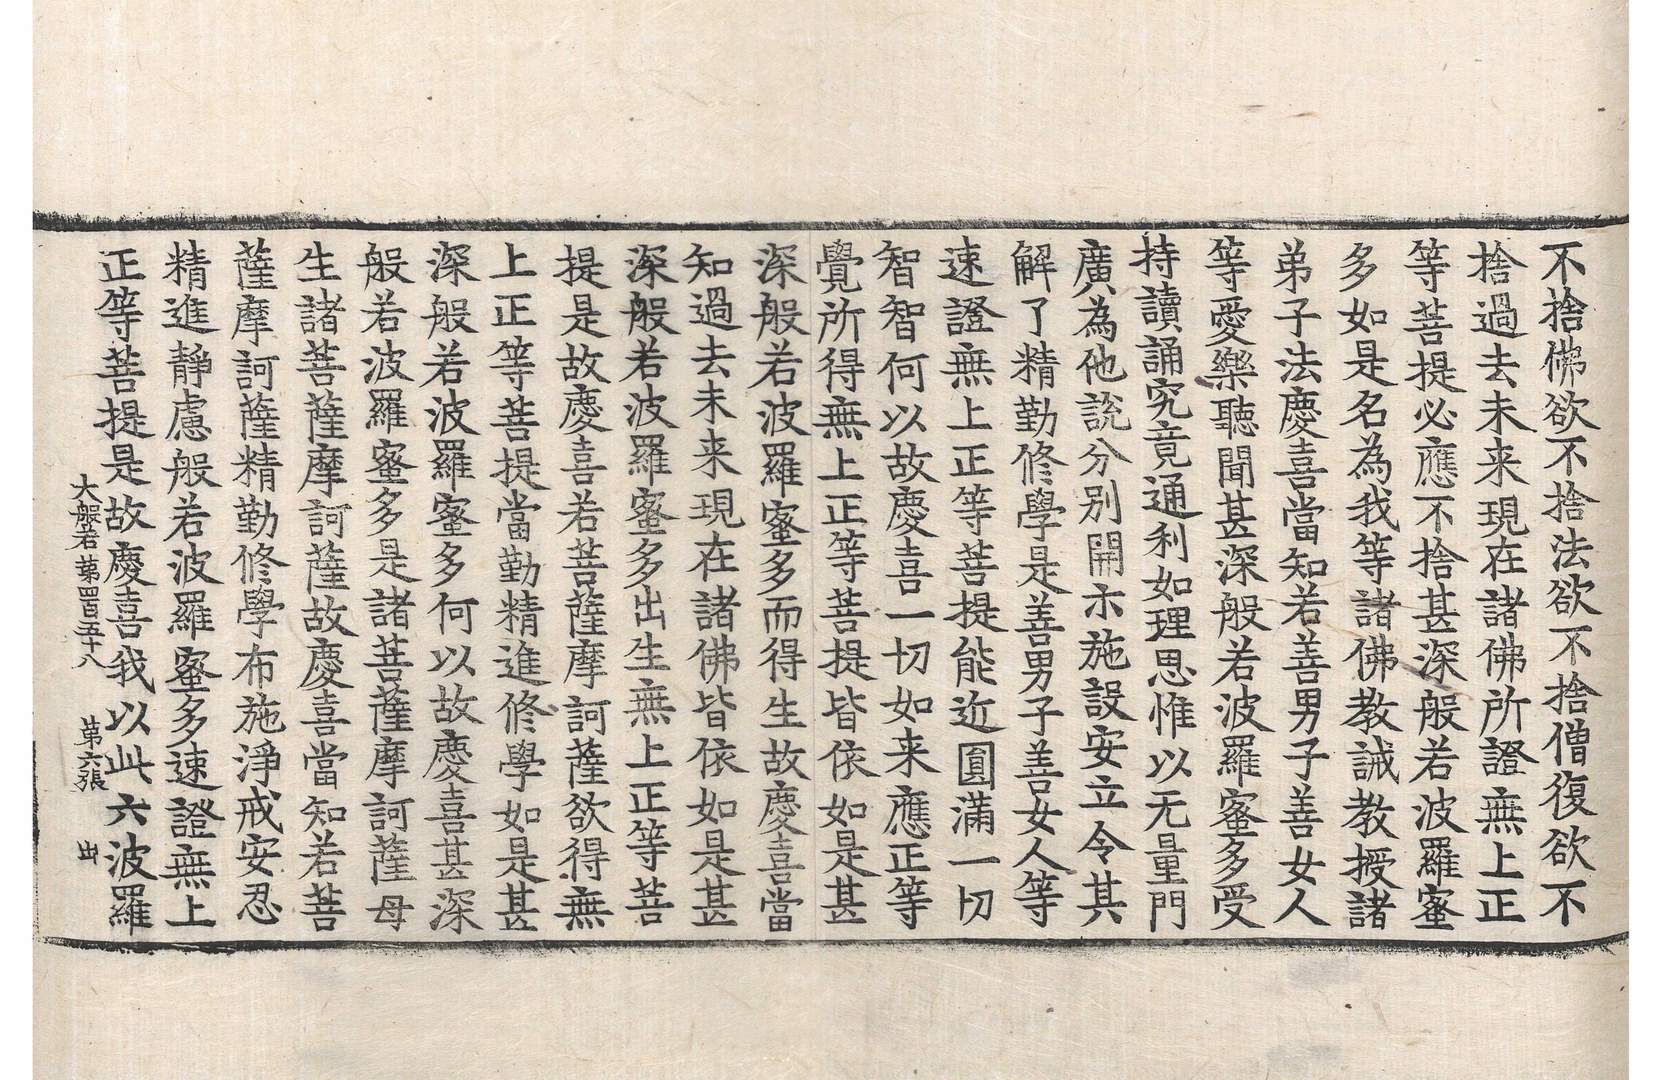 不捨佛欲不捨法欲不捨僧復欲不
捨過去未来現在諸佛所證無上正
等菩提必應不捨甚深般若波羅蜜
多如是名為我等諸佛教誡教授諸
弟子法慶喜當知若善男子善女人
等愛樂聽聞甚深般若波羅蜜多受
持讀誦究竟通利如理思惟以无量門
廣為他說分別開示施設安立令其
解了精勤修學是善男子善女人等
速證無上正等菩提能近圓滿一切
智智何以故慶喜一切如来應正等
覺所得無上正等菩提皆依如是甚
深般若波羅蜜多而得生故慶喜當
知過去未来現在諸佛皆依如是甚
深般若波羅蜜多出生無上正等菩
提是故慶喜若菩薩摩訶薩欲得無
上正等菩提當勤精進修學如是甚
深般若波羅蜜多何以故慶喜甚深
般若波羅蜜多是諸菩薩摩訶薩母
生諸菩薩摩訶薩故慶喜當知若菩
薩摩訶薩精勤修學布施淨戒安忍
精進靜慮般若波羅蜜多速證無上
正等菩提是故慶喜我以此六波羅
大般若第四百五十八 第六張 出